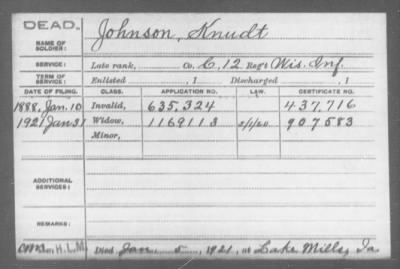 DEAD.
NAME OF SOLDIER: Johnson, Knudt
SERVICE: Late rank, Co. C, 12 Reg't Wis. Inf.
TERM OF SERVICE: Enlisted , 1 Discharged , 1
DATE OF FILING. CLASS. APPLICATION NO. LAW. CERTIFICATE NO.
1888, Jan. 10 Invalid, 635,324 437,716
1921 Jan 31 Widow, 1169113 5/1/20 907583
Minor,
ADDITIONAL SERVICES:
REMARKS:
H.L.M. Died Jan. 5, 1921, at Lake Mills, Ia.